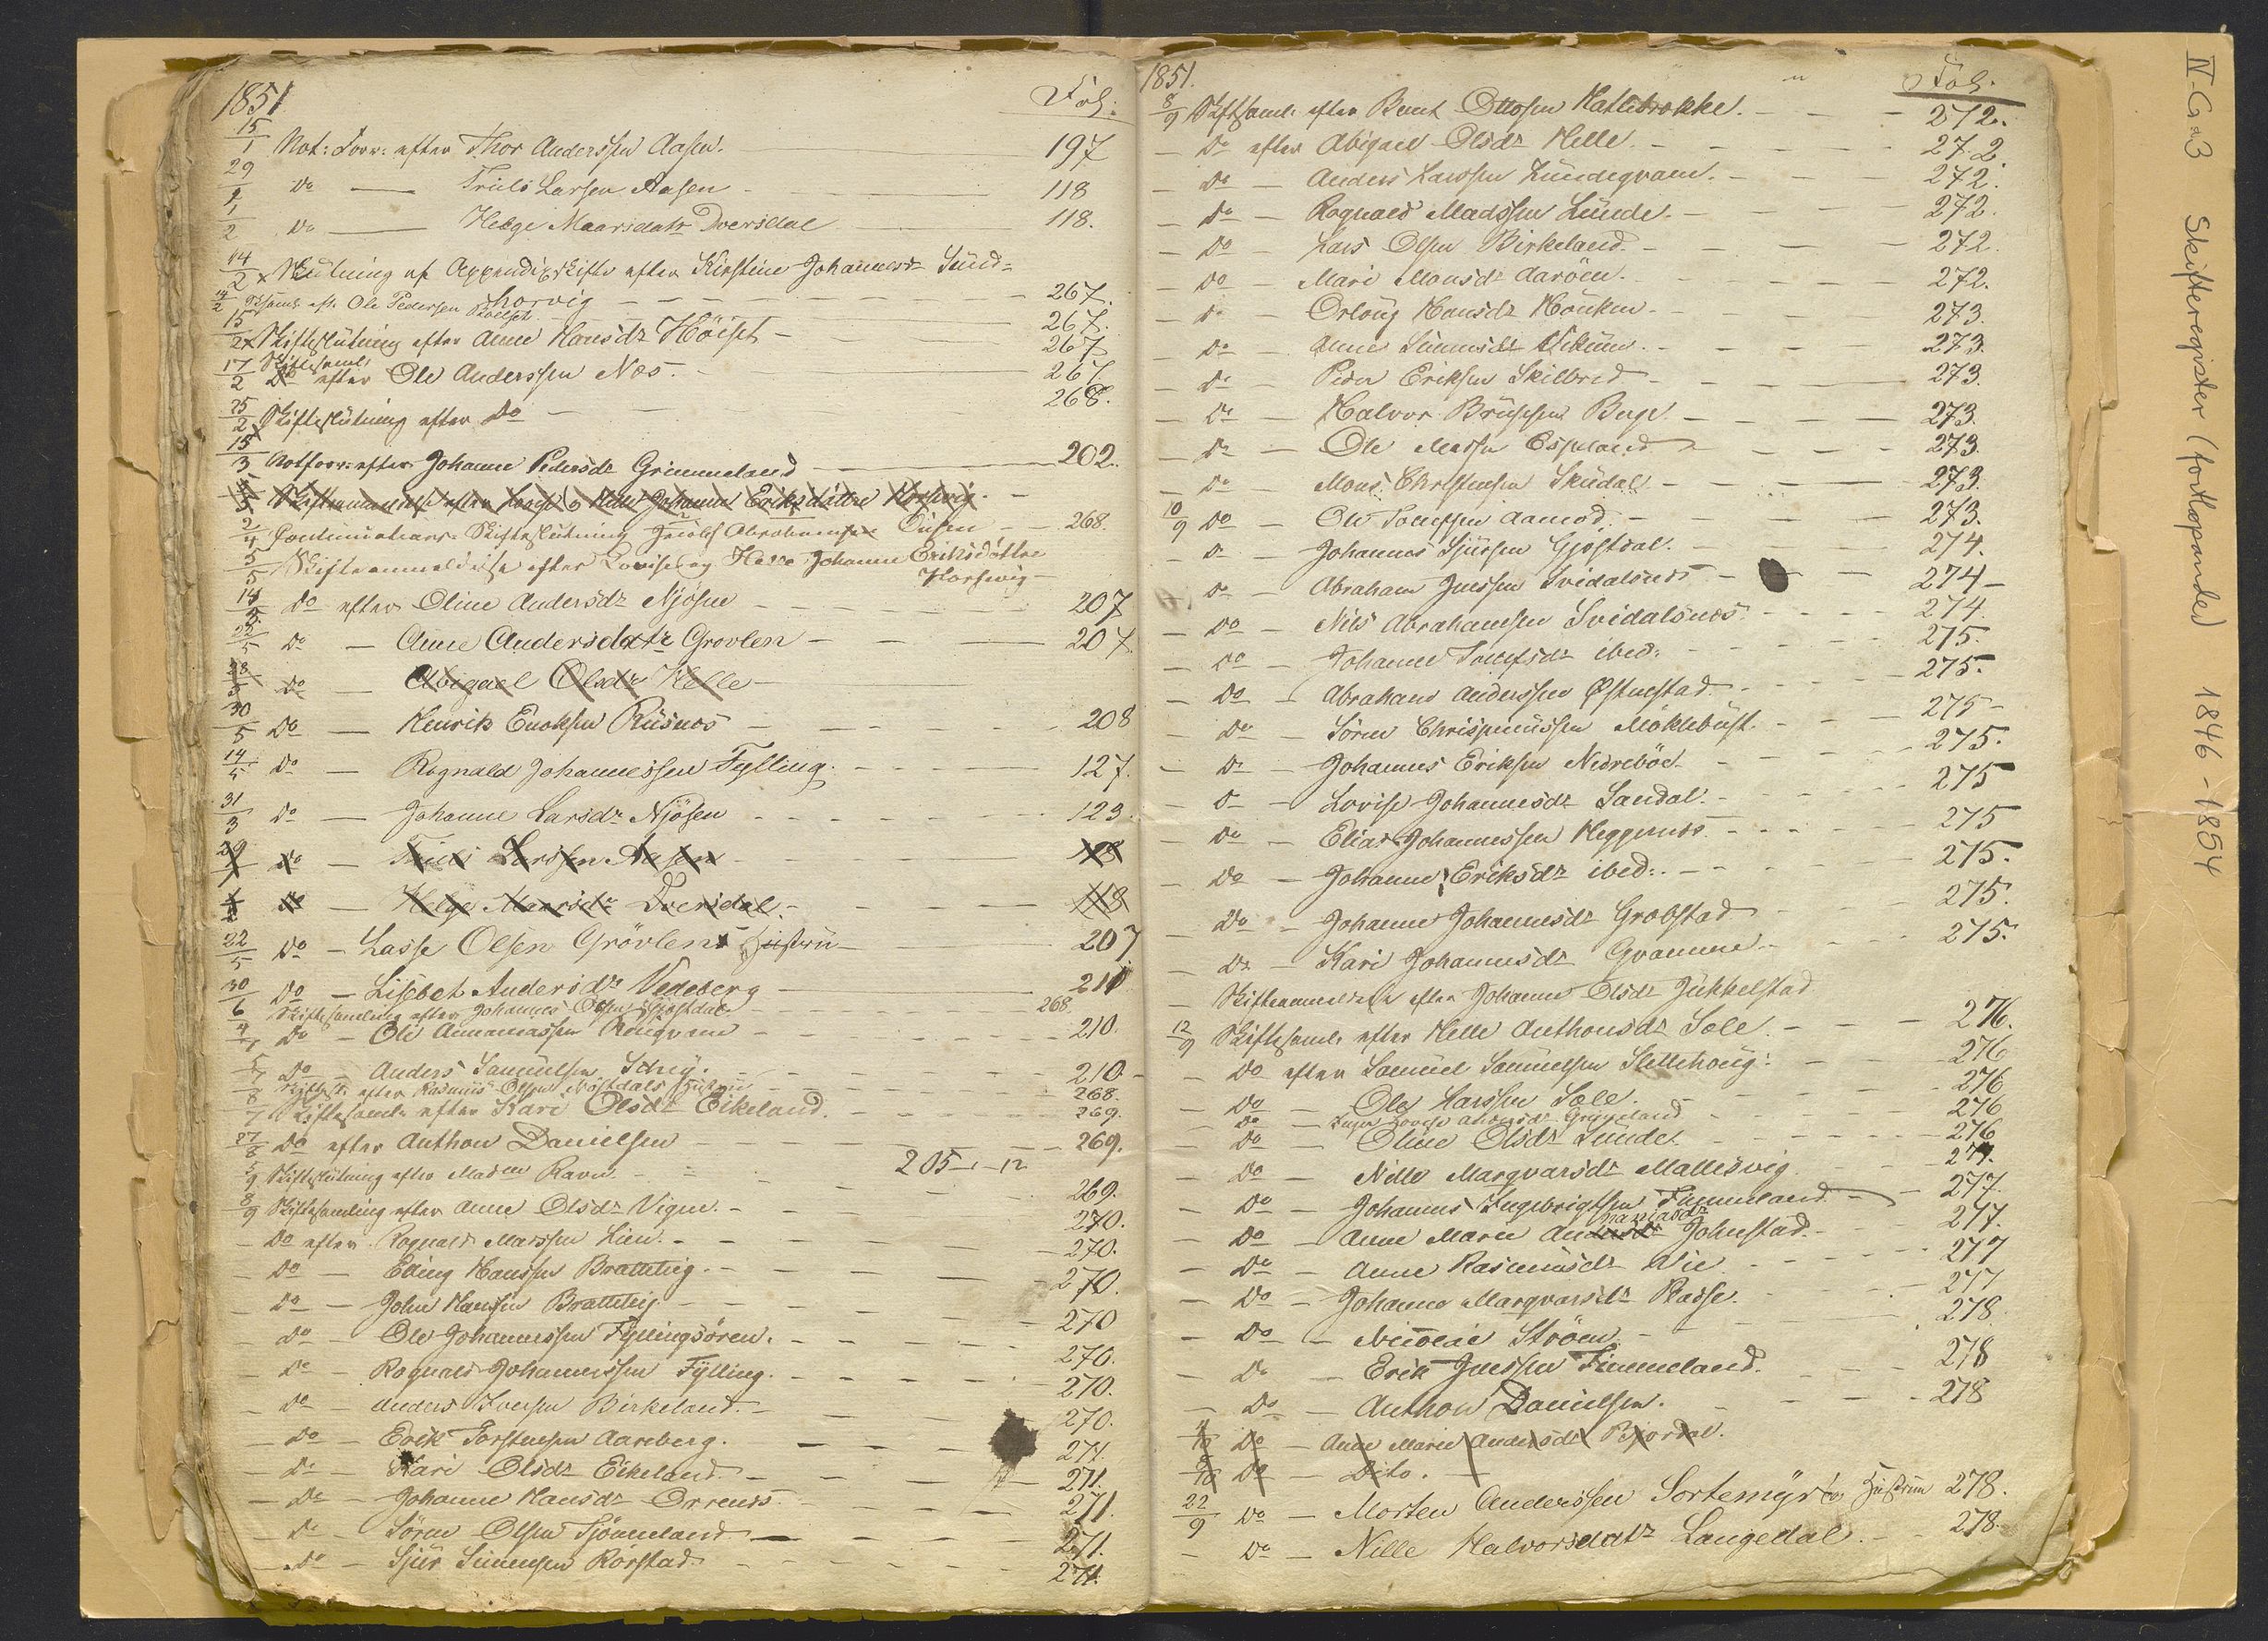 1851 Fol:
15/1 Not: Forr: efter Thor Anderssen Aasen. 197
29/1 Do — Truls Larsen Aasen 118
1/2 Do — Helge Maarsdatr Dversdal 118.
14/2 x Slutning af Appendixskifte efter Kirstine Johannesdr Sund-
horvig 267.
14/2 Sksaml. eft. Ole Pedersen 267.
15/2 x Skifteslutning efter Anne Hansdr Höiset 267
17/2 Skiftesaml. efter Ole Anderssen Næs. 267
25/2 Skifteslutning efter Do 268.
15/3 Notforr: efter Johanne Pedersdr Grimmeland 202.
Skifteanmeldelse efter Lovise og Helle Johanne Eriksdöttre Horsevig
2/4 Continuations Skifteslutning Jacob Abrahamsen 268.
5/5 Skifteanmeldelse efter Lovise og Helle Johanne Eriksdöttre
Horsevig
14/5 Do efter Oline Andersdr Njösen 207
22/5 Do — Anne Andersdatr Grovlen 207
28/5 Do — Abigael Olsdr Helle
30/5 Do — Henrik Enoksen Risnæs 208
14/5 Do — Rognald Johannessen Fylling. 127.
31/3 Do — Johanne Larsdr Njösen 123.
29/1 Do — Truls Larssen Aasen 118
1/2 Do — Helge Maarsdr Dversdal 118
22/5 Do — Lasse Olsen Grövlens Hustru 207
30/6 Do — Lisebet Andersdr Vedeberg 210
Skiftesamling efter Johannes Olsen Gjostdal 268.
4/7 Do — Ole 210.
5/7 Do — Anders Samuelsen 210.
Skiftesl. efter Rasmus Olsen Hustru 268.
8/7 Skiftesaml. efter Kari Olsdr Eikeland. 269.
27/8 Do efter Anthon Danielsen 269.
5/9 Skifteslutning efter Madm Ravn 205 — 12 269.
8/9 Skiftesamling efter Anne Olsdr Vigen. 270.
— Do efter Rognald Marssen Lien. 270.
— Do — Eling Hanssen Bratteteig. 270.
— Do — John Hanssen Bratteteig. 270
— Do — Ole Johannessen Fyllingsören. 270.
— Do — Rognald Johannessen Fylling. 270.
— Do — Anders Iversen Birkeland. 270.
— Do — Erik Torstensen Aareberg. 271.
— Do — Kari Olsdr Eikeland. 271.
— Do — Johanne Hansdr Orrenæs 271.
— Do — Sören Olsen Tjönneland 271.
— Do — Sjur Simensen Rörstad 271.
1851. Fol.
8/9 Skiftsaml. efter Bent Ottosen Hatlebrekke. 272.
— Do efter Abigael Olsdr Helle. 272.
— Do — Anders Larssen Lundegraem. 272.
— Do — Rognald Madssen Lunde. 272.
— Do — Lars Olsen Birkeland. 272.
— Do — Mari Monsdr Aaröen. 272.
— Do — Orloug Hansdr 273.
— Do — Anne 273.
— Do — Peder Eriksen Skilbred 273.
— Do — Halvor 273.
— Do — Ole Espeland 273.
— Do — Mons Christensen Skudal 273.
10/9 Do — Ole Aamod. 273.
— Do — Johannes Sjursen Gjostdal. 274.
— Do — Abraham Jonssen Svidalsnæs 274
— Do — Nils Abrahamsen Svidalsnæs. 274.
— Do — Johanne Josefsdr ibed: 275.
— Do — Abraham Anderssen Østenstad. 275.
— Do — Sören Chrispinussen Möklebust. 275
— Do — Johannes Eriksen Nedrebö 275.
— Do — Lovise Johannesdr Sandal. 275
— Do — Elias Johannessen Heggenæs. 275
— Do — Johanne Eriksdr ibed: 275.
— Do — Johanne Johannesdr Grobstad 275.
— Do — Kari Johannesdr 275.
— Skifteanmeldelse efter Johanne Olsdr Jukkelstad
12/9 Skiftesaml. efter Helle Anthonsdr Sole. 276.
— Do efter Samuel Samuelsen Slettehoug. 276
— Do — Ole Larssen Sole. 276
— Do — Lovise 276
— Do — Oline Olsdr Lunde. 276
— Do — Nille Marqvarsdr Mallesvig 277.
— Do — Johannes Ingebrigtsen Timmeland 277.
— Do — Anne Marie Andersdr Ananiasdr Johnstad. 277.
— Do — Anne Rasmusdr Vie 277
— Do — Johanne Marqvarsdr 277
— Do — Nicolai Ström 278.
— Do — Erik Jonssen Timmeland. 278
— Do — Anthon Danielsen. 278
Do — Anne Marie Andersdr
Do — Dito.
22/9 Do — Morten Anderssen Sortemyrs Hustru 278.
— Do — Nille Halvorsdatr Langedal 278.
IV-Ga3 Skifteregister (fortløpende) 1846-1854